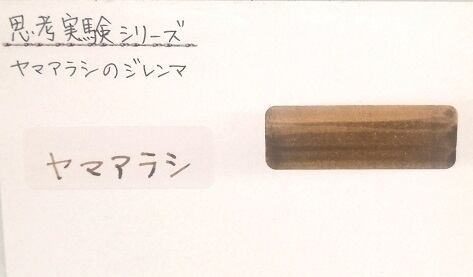 思考実験シリーズ
ヤマアラシのジレンマ
ヤマアラシ